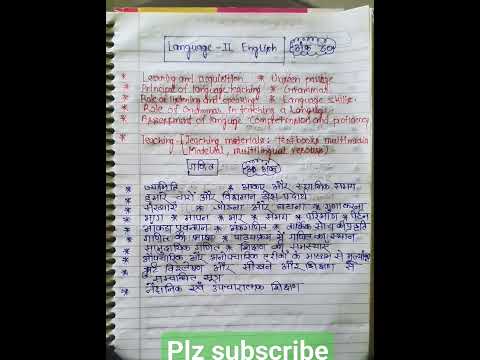 Language - II English
30 अंक
* Learning and acquisition * Unseen passage
* Principal of language teaching * Grammar
* Role of listening and speaking * Language skills
* Role of Grammar in teaching a Language
* Assessment of language comprehension and proficiency
* Teaching - [Teaching materials: Textbooks multimedia
Material, multilingual
गणित
30 अंक
* ज्यामिति * आकार और स्थानिक समझ
* हमारे चारों ओर विद्यमान ठोस पदार्थ
* संख्याएँ * जोड़ना और घटाना * गुणा करना
* भाग * मापन * भार * समय * परिमाण * पैटर्न
* आंकड़ा प्रबन्धन * तार्किक सोच की प्रकृति
* गणित की भाषा * पाठ्यक्रम में गणित का स्थान
* सामुदायिक गणित * शिक्षण की समस्याएँ
* औपचारिक और अनौपचारिक तरीकों के माध्यम से मूल्यांकन
* विश्लेषण और सीखने और शिक्षण से
सम्बन्धित
* नैदानिक एवं उपचारात्मक शिक्षण
Plz subscribe